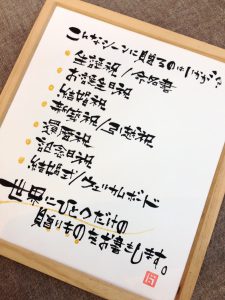 こんなシーンに贈るのはいかが?
生誕祝/命名書
お誕生日祝
結婚祝
新築祝/引越祝
還暦祝
記念日祝
結婚式/ウェルカムボード
世界にひとつだけの
贈りものをお書きします。